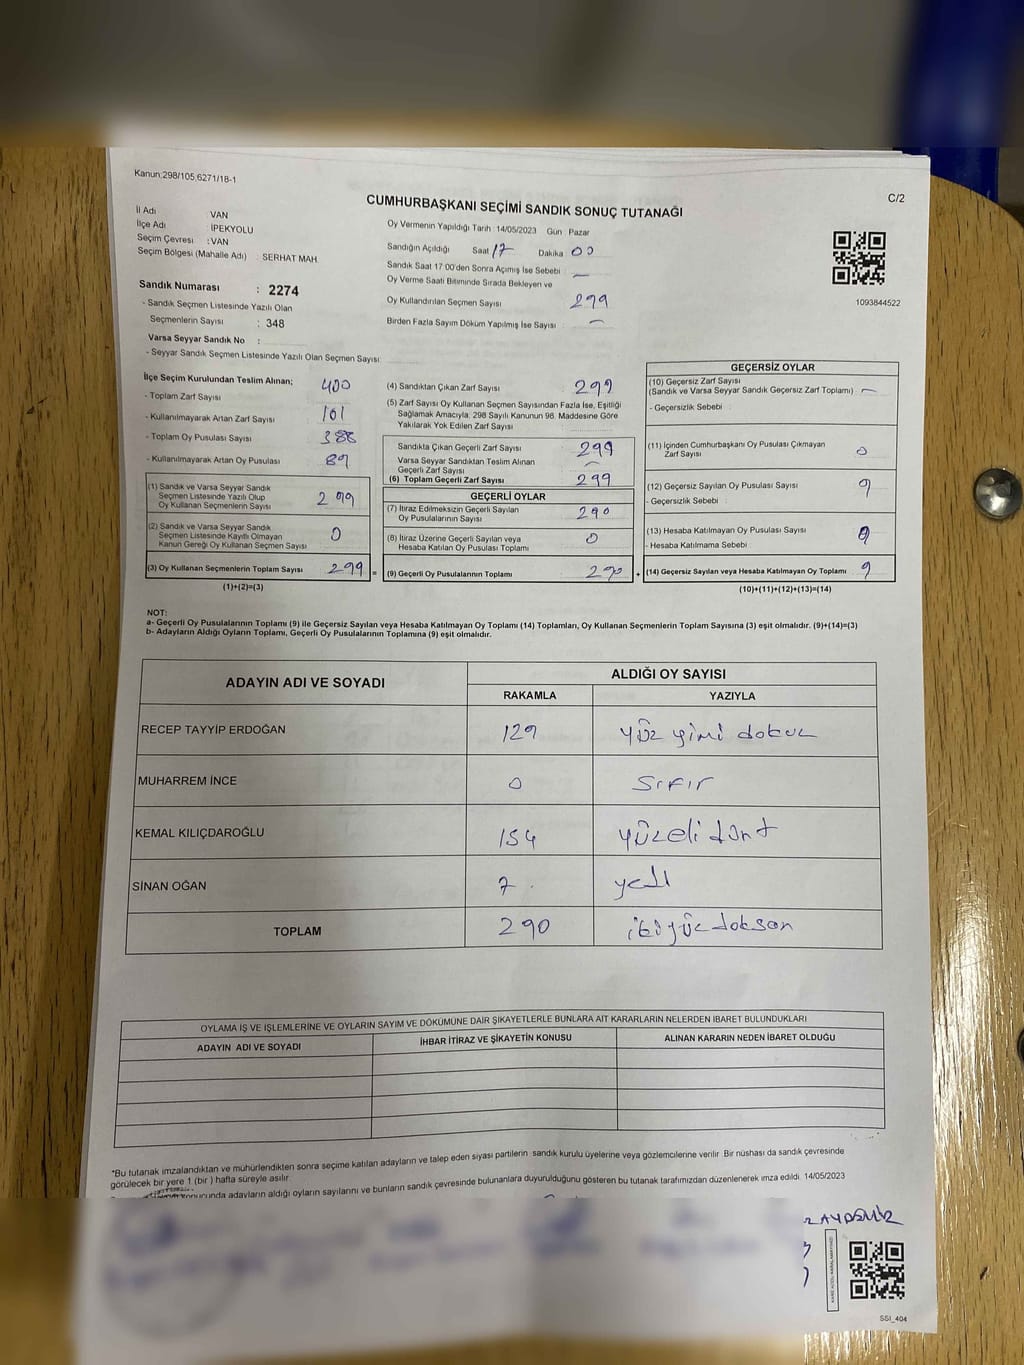 Kanun;298/105,6271/18-1
C/2
CUMHURBAŞKANI SEÇİMİ SANDIK SONUÇ TUTANAĞI
İl Adı VAN
İlçe Adı İPEKYOLU
Seçim Çevresi : VAN
Seçim Bölgesi (Mahalle Adı) : SERHAT MAH.
Sandık Numarası : 2274
- Sandık Seçmen Listesinde Yazılı Olan
Seçmenlerin Sayısı : 348
Varsa Seyyar Sandık No :
- Seyyar Sandık Seçmen Listesinde Yazılı Olan Seçmen Sayısı:
Oy Vermenin Yapıldığı Tarih :14/05/2023 Gün :Pazar
Sandığın Açıldığı Saat 17 Dakika 00
Sandık Saat 17:00'den Sonra Açımış İse Sebebi : —
Oy Verme Saati Bitiminde Sırada Bekleyen ve
Oy Kullandırılan Seçmen Sayısı 299
Birden Fazla Sayım Döküm Yapılmış İse Sayısı : —
1093844522
İlçe Seçim Kurulundan Teslim Alınan;
- Toplam Zarf Sayısı 400
- Kullanılmayarak Artan Zarf Sayısı : 101
- Toplam Oy Pusulası Sayısı : 388
- Kullanılmayarak Artan Oy Pusulası 89
(1) Sandık ve Varsa Seyyar Sandık
Seçmen Listesinde Yazılı Olup
Oy Kullanan Seçmenlerin Sayısı 299
(2) Sandık ve Varsa Seyyar Sandık
Seçmen Listesinde Kayıtlı Olmayan
Kanun Gereği Oy Kullanan Seçmen Sayısı 0
(3) Oy Kullanan Seçmenlerin Toplam Sayısı 299 =
(1)+(2)=(3)
(4) Sandıktan Çıkan Zarf Sayısı : 299
(5) Zarf Sayısı Oy Kullanan Seçmen Sayısından Fazla İse, Eşitliği
Sağlamak Amacıyla, 298 Sayılı Kanunun 98. Maddesine Göre
Yakılarak Yok Edilen Zarf Sayısı :
Sandıkta Çıkan Geçerli Zarf Sayısı 299
Varsa Seyyar Sandıktan Teslim Alınan
Geçerli Zarf Sayısı —
(6) Toplam Geçerli Zarf Sayısı 299
GEÇERLİ OYLAR
(7) İtiraz Edilmeksizin Geçerli Sayılan
Oy Pusulalarının Sayısı 290
(8) İtiraz Üzerine Geçerli Sayılan veya
Hesaba Katılan Oy Pusulası Toplamı 0
(9) Geçerli Oy Pusulalarının Toplamı 290 +
GEÇERSİZ OYLAR
(10) Geçersiz Zarf Sayısı
(Sandık ve Varsa Seyyar Sandık Geçersiz Zarf Toplamı) —
- Geçersizlik Sebebi :
(11) İçinden Cumhurbaşkanı Oy Pusulası Çıkmayan
Zarf Sayısı 0
(12) Geçersiz Sayılan Oy Pusulası Sayısı 9
- Geçersizlik Sebebi :
(13) Hesaba Katılmayan Oy Pusulası Sayısı
- Hesaba Katılmama Sebebi :
(14) Geçersiz Sayılan veya Hesaba Katılmayan Oy Toplamı 9
(10)+(11)+(12)+(13)=(14)
NOT:
a- Geçerli Oy Pusulasının Toplamı (9) ile Geçersiz Sayılan veya Hesaba Katılmayan Oy Toplamı (14) Toplamları, Oy Kullanan Seçmenlerin Toplam Sayısına (3) eşit olmalıdır. (9)+(14)=(3)
b- Adayların Aldığı Oyların Toplamı, Geçerli Oy Pusulalarının Toplamına (9) eşit olmalıdır.
ADAYIN ADI VE SOYADI
ALDIĞI OY SAYISI
RAKAMLA YAZIYLA
RECEP TAYYİP ERDOĞAN 129 yüz yirmi dokuz
MUHARREM İNCE 0 Sıfır
KEMAL KILIÇDAROĞLU 154 yüzelli dört
SİNAN OĞAN 7 yedi
TOPLAM 290 ikiyüz doksan
OYLAMA İŞ VE İŞLEMLERİNE VE OYLARIN SAYIM VE DÖKÜMÜNE DAİR ŞİKAYETLERLE BUNLARA AİT KARARLARIN NELERDEN İBARET BULUNDUKLARI
ADAYIN ADI VE SOYADI İHBAR İTİRAZ VE ŞİKAYETİN KONUSU ALINAN KARARIN NEDEN İBARET OLDUĞU
*Bu tutanak imzalandıktan ve mühürlendikten sonra seçime katılan adayların ve talep eden siyasi partilerin sandık kurulu üyelerine veya gözlemcilerine verilir. Bir nüshası da sandık çevresinde
görülecek bir yere 1 (bir ) hafta süreyle asılır.
sonucunda adayların aldığı oyların sayılarını ve bunların sandık çevresinde bulunanlara duyurulduğunu gösteren bu tutanak tarafımızdan düzenlenerek imza edildi. 14/05/2023
AYDEMİR
SSI_404